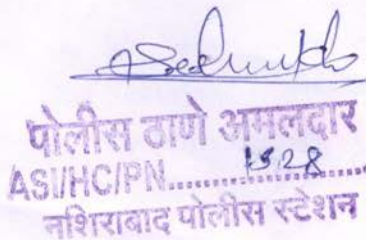 पोलीस ठाणे अमलदार
ASI/HC/PN......1528......
नशिराबाद पोलीस स्टेशन